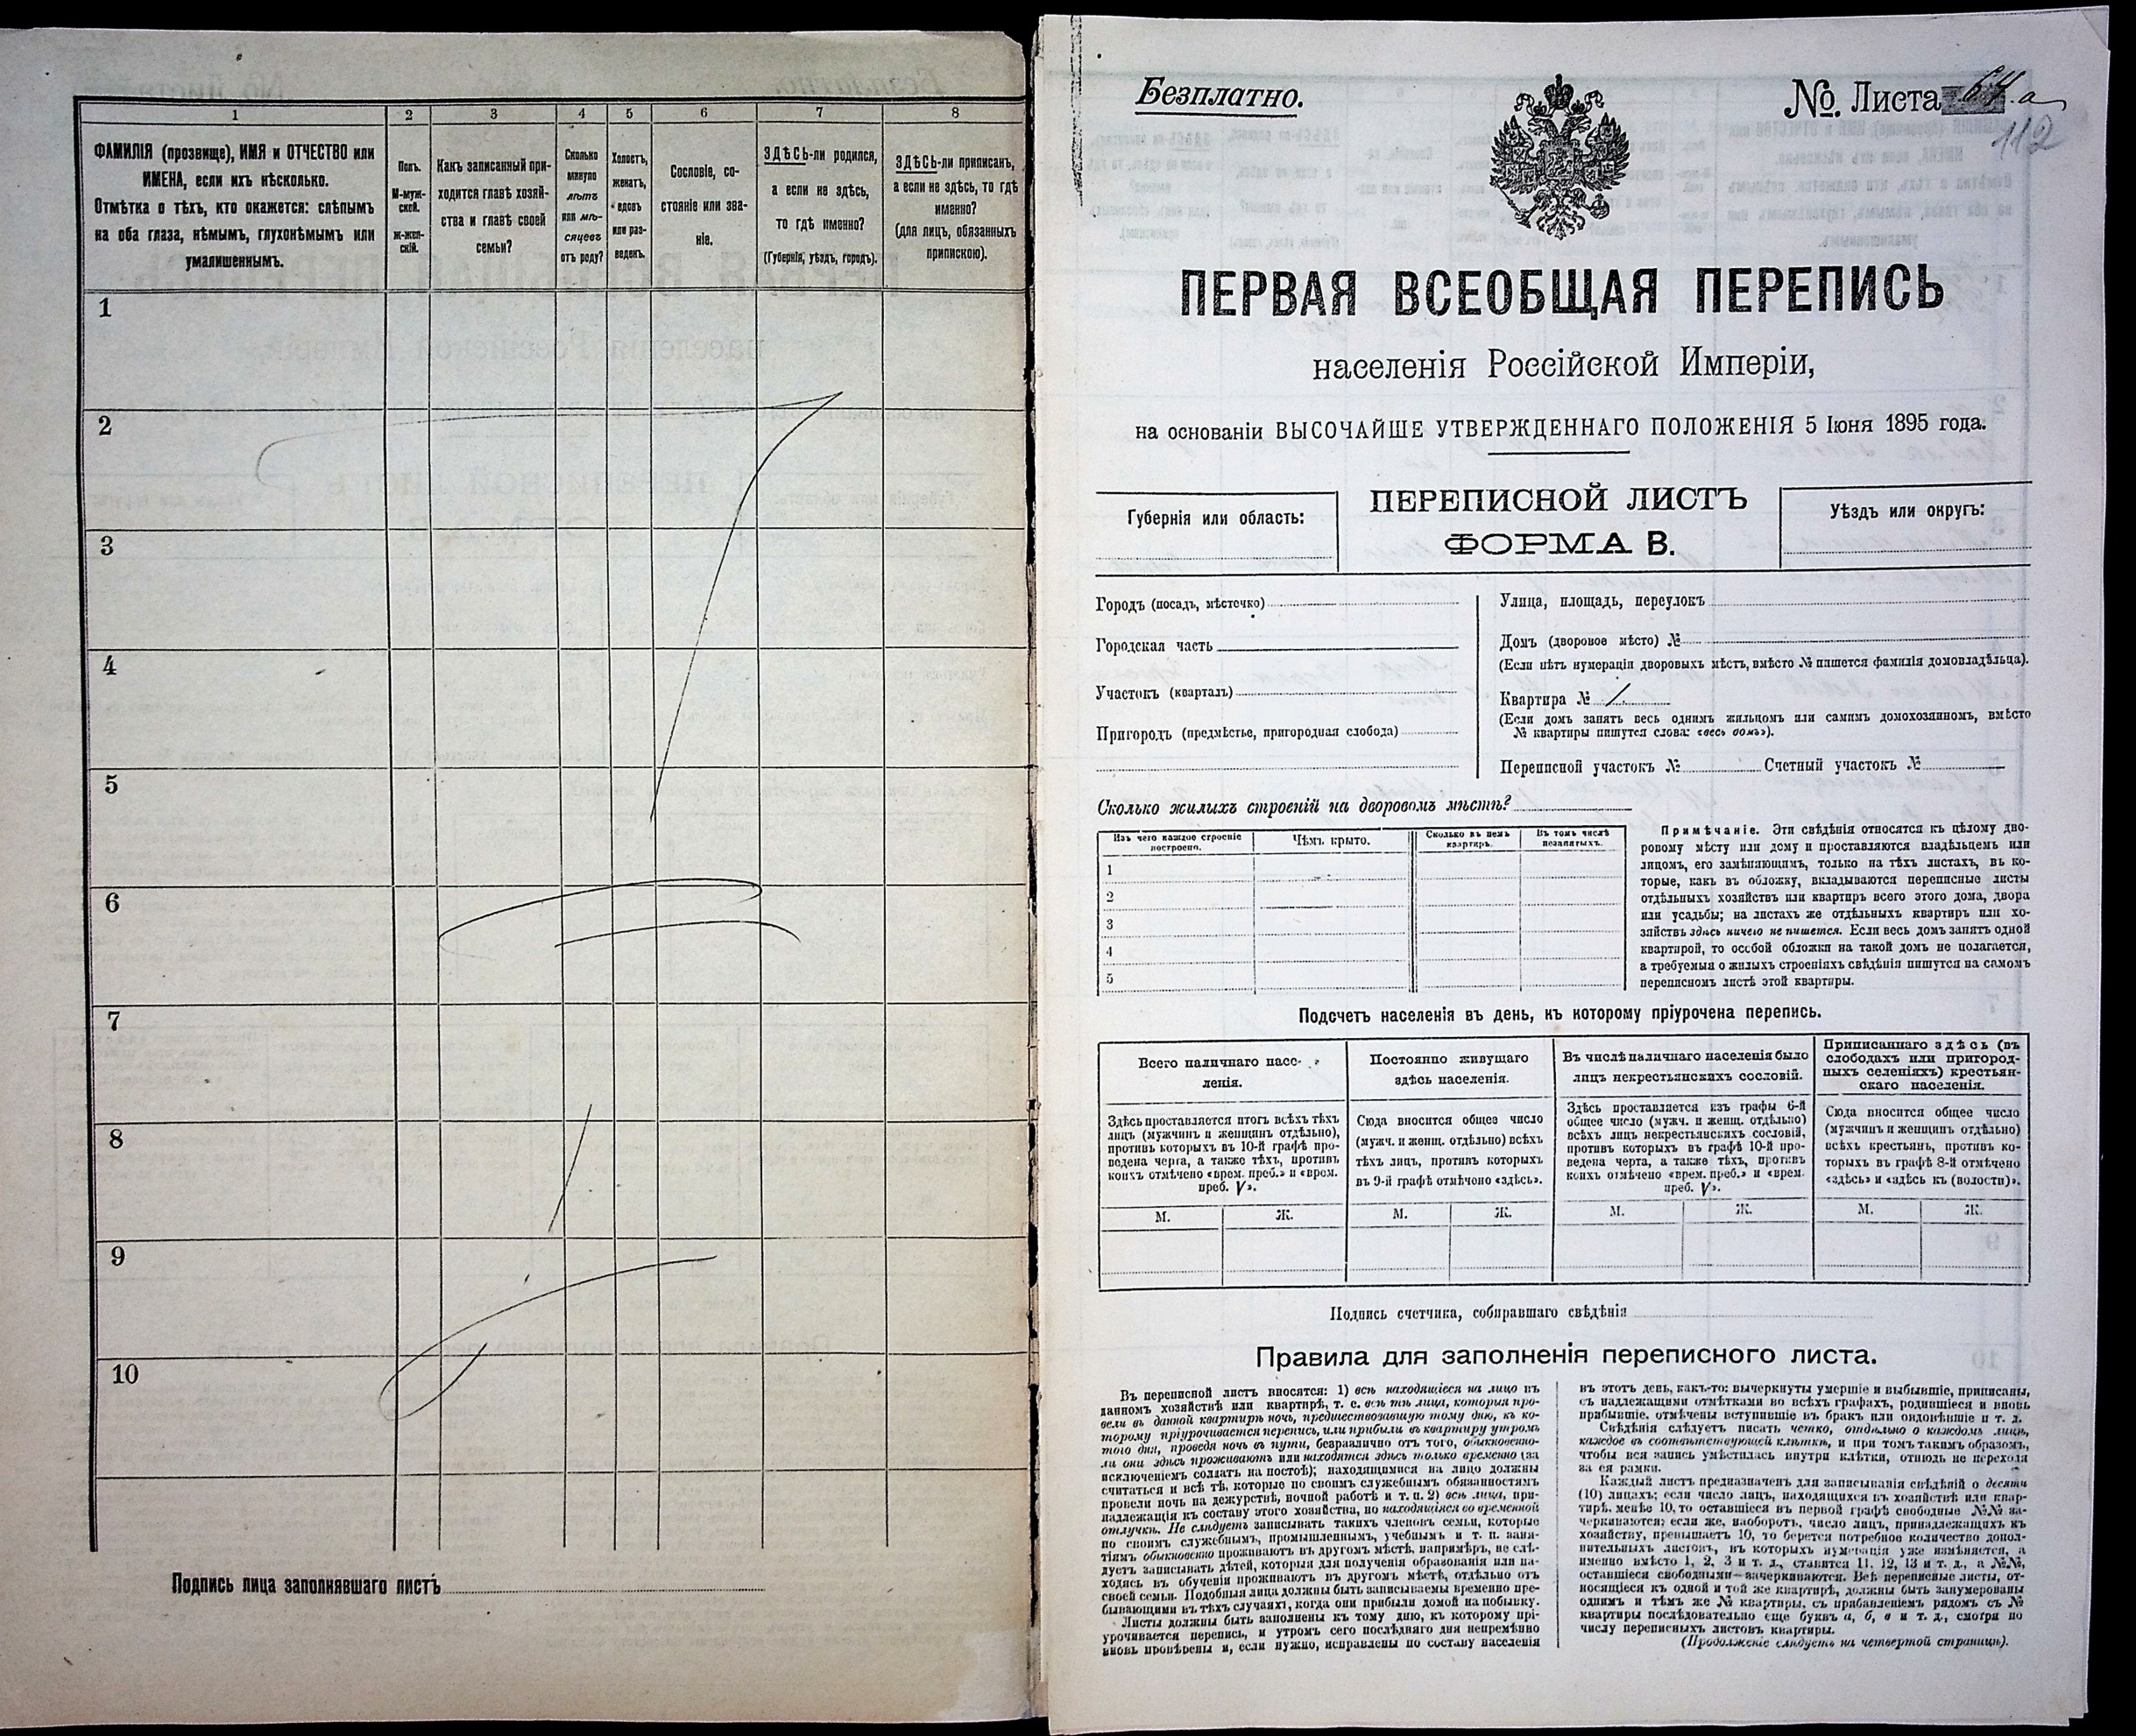 1 2 3 4 5 6 7 8
ФАМИЛІЯ (прозвище), ИМЯ и ОТЧЕСТВО или
ИМЕНА, если ихъ нѣсколько.
Отмѣтка о тѣхъ, кто окажется: слѣпымъ
на оба глаза, нѣмымъ, глухонѣмымъ или
умалишеннымъ.
Полъ.
М-муж-
ской.
ж-жен-
скій.
Какъ записанный при-
ходится главѣ хозяй-
ства и главѣ своей
семьи?
Сколько
минуло
лѣтъ
или мѣ-
сяцевъ
отъ роду?
Холостъ,
женатъ,
вдовъ
или раз-
веденъ.
Сословіе, со-
стояніе или зва-
ніе.
ЗДѢСЬ-ли родился,
а если не здѣсь,
то гдѣ именно?
(Губернія, уѣздъ, городъ).
ЗДѢСЬ-ли приписанъ,
а если не здѣсь, то гдѣ
именно?
(для лицъ, обязанныхъ
припискою).
1
2
3
4
5
6
7
8
9
10
Подпись лица заполнявшаго листъ
Безплатно.
№ Листа 64 а
112
ПЕРВАЯ ВСЕОБЩАЯ ПЕРЕПИСЬ
населенія Россійской Имперіи,
на основаніи ВЫСОЧАЙШЕ УТВЕРЖДЕННАГО ПОЛОЖЕНІЯ 5 Іюня 1895 года.
Губернія или область:
ПЕРЕПИСНОЙ ЛИСТЪ
ФОРМА В.
Уѣздъ или округъ:
Городъ (посадъ, мѣстечко)
Городская часть
Участокъ (кварталъ)
Пригородъ (предмѣстье, пригородная слобода)
Улица, площадь, переулокъ
Домъ (дворовое мѣсто) №
(Если нѣтъ нумераціи дворовыхъ мѣстъ, вмѣсто № пишется фамилія домовладѣльца).
Квартира № 1
(Если домъ занятъ весь однимъ жильцомъ или самимъ домохозяиномъ, вмѣсто
№ квартиры пишутся слова: «весь домъ»).
Переписной участокъ № Счетный участокъ №
Сколько жилыхъ строеній на дворовомъ мѣстѣ?
Изъ чего каждое строеніе
построено.
Чѣмъ крыто.
Сколько въ немъ
квартиръ.
Въ томъ числѣ
незанятыхъ.
1
2
3
4
5
Примѣчаніе. Эти свѣдѣнія относятся къ цѣлому дво-
ровому мѣсту или дому и проставляются владѣльцемъ или
лицомъ, его замѣняющимъ, только на тѣхъ листахъ, въ ко-
торые, какъ въ обложку, вкладываются переписные листы
отдѣльныхъ хозяйствъ или квартиръ всего этого дома, двора
или усадьбы; на листахъ же отдѣльныхъ квартиръ или хо-
зяйствъ здѣсь ничего не пишется. Если весь домъ занятъ одной
квартирой, то особой обложки на такой домъ не полагается,
а требуемыя о жилыхъ строеніяхъ свѣдѣнія пишутся на самомъ
переписномъ листѣ этой квартиры.
Подсчетъ населенія въ день, къ которому пріурочена перепись.
Всего наличнаго насе-
ленія.
Постоянно живущаго
здѣсь населенія.
Въ числѣ наличнаго населенія было
лицъ некрестьянскихъ сословій.
Приписаннаго здѣсь (въ
слободахъ или пригород-
ныхъ селеніяхъ) крестьян-
скаго населенія.
Здѣсь проставляется итогъ всѣхъ тѣхъ
лицъ (мужчинъ и женщинъ отдѣльно),
противъ которыхъ въ 10-й графѣ про-
ведена черта, а также тѣхъ, противъ
коихъ отмѣчено «врем. преб.» и «врем.
преб. V».
Сюда вносится общее число
(мужч. и женщ. отдѣльно) всѣхъ
тѣхъ лицъ, противъ которыхъ
въ 9-й графѣ отмѣчено «здѣсь».
Здѣсь проставляется изъ графы 6-й
общее число (мужч. и женщ. отдѣльно)
всѣхъ лицъ некрестьянскихъ сословій,
противъ которыхъ въ графѣ 10-й про-
ведена черта, а также тѣхъ, противъ
коихъ отмѣчено «врем. преб.» и «врем.
преб. V».
Сюда вносится общее число
(мужчинъ и женщинъ отдѣльно)
всѣхъ крестьянъ, противъ ко-
торыхъ въ графѣ 8-й отмѣчено
«здѣсь» и «здѣсь къ (волости)».
М. Ж. М. Ж. М. Ж. М. Ж.
Подпись счетчика, собиравшаго свѣдѣнія
Правила для заполненія переписного листа.
Въ переписной листъ вносятся: 1) всѣ находящіеся на лицо въ
данномъ хозяйствѣ или квартирѣ, т. е. всѣ тѣ лица, которыя про-
вели въ данной квартирѣ ночь, предшествовавшую тому дню, къ ко-
торому пріурочивается перепись, или прибыли въ квартиру утромъ
того дня, проведя ночь въ пути, безразлично отъ того, обыкновенно-
ли они здѣсь проживаютъ или находятся здѣсь только временно (за
исключеніемъ солдатъ на постоѣ); находящимися на лицо должны
считаться и всѣ тѣ, которые по своимъ служебнымъ обязанностямъ
провели ночь на дежурствѣ, ночной работѣ и т. п. 2) всѣ лица, при-
надлежащія къ составу этого хозяйства, но находящіяся во временной
отлучкѣ. Не слѣдуетъ записывать такихъ членовъ семьи, которые
по своимъ служебнымъ, промышленнымъ, учебнымъ и т. п. заня-
тіямъ обыкновенно проживаютъ въ другомъ мѣстѣ, напримѣръ, не слѣ-
дуетъ записывать дѣтей, которыя для полученія образованія или на-
ходясь въ обученіи проживаютъ въ другомъ мѣстѣ, отдѣльно отъ
своей семьи. Подобныя лица должны быть записываемы временно пре-
бывающими въ тѣхъ случаяхъ, когда они прибыли домой на побывку.
Листы должны быть заполнены къ тому дню, къ которому прі-
урочивается перепись, и утромъ сего послѣдняго дня непремѣнно
вновь провѣрены и, если нужно, исправлены по составу населенія
въ этотъ день, какъ-то: вычеркнуты умершіе и выбывшіе, приписаны,
съ надлежащими отмѣтками во всѣхъ графахъ, родившіеся и вновь
прибывшіе, отмѣчены вступившіе въ бракъ или овдовѣвшіе и т. д.
Свѣдѣнія слѣдуетъ писать четко, отдѣльно о каждомъ лицѣ,
каждое въ соотвѣтствующей клѣткѣ, и при томъ такимъ образомъ,
чтобы вся запись умѣстилась внутри клѣтки, отнюдь не переходя
за ея рамки.
Каждый листъ предназначенъ для записыванія свѣдѣній о десяти
(10) лицахъ; если число лицъ, находящихся въ хозяйствѣ или квар-
тирѣ, менѣе 10, то оставшіеся въ первой графѣ свободные №№ за-
черкиваются; если же, наоборотъ, число лицъ, принадлежащихъ къ
хозяйству, превышаетъ 10, то берется потребное количество допол-
нительныхъ листовъ, въ которыхъ нумерація уже измѣняется, а
именно вмѣсто 1, 2, 3 и т. д., ставятся 11, 12, 13 и т. д., а №№,
оставшіеся свободными—зачеркиваются. Всѣ переписные листы, от-
носящіеся къ одной и той же квартирѣ, должны быть занумерованы
однимъ и тѣмъ же № квартиры, съ прибавленіемъ рядомъ съ №
квартиры послѣдовательно еще буквъ а, б, в и т. д., смотря по
числу переписныхъ листовъ квартиры.
(Продолженіе слѣдуетъ на четвертой страницѣ).